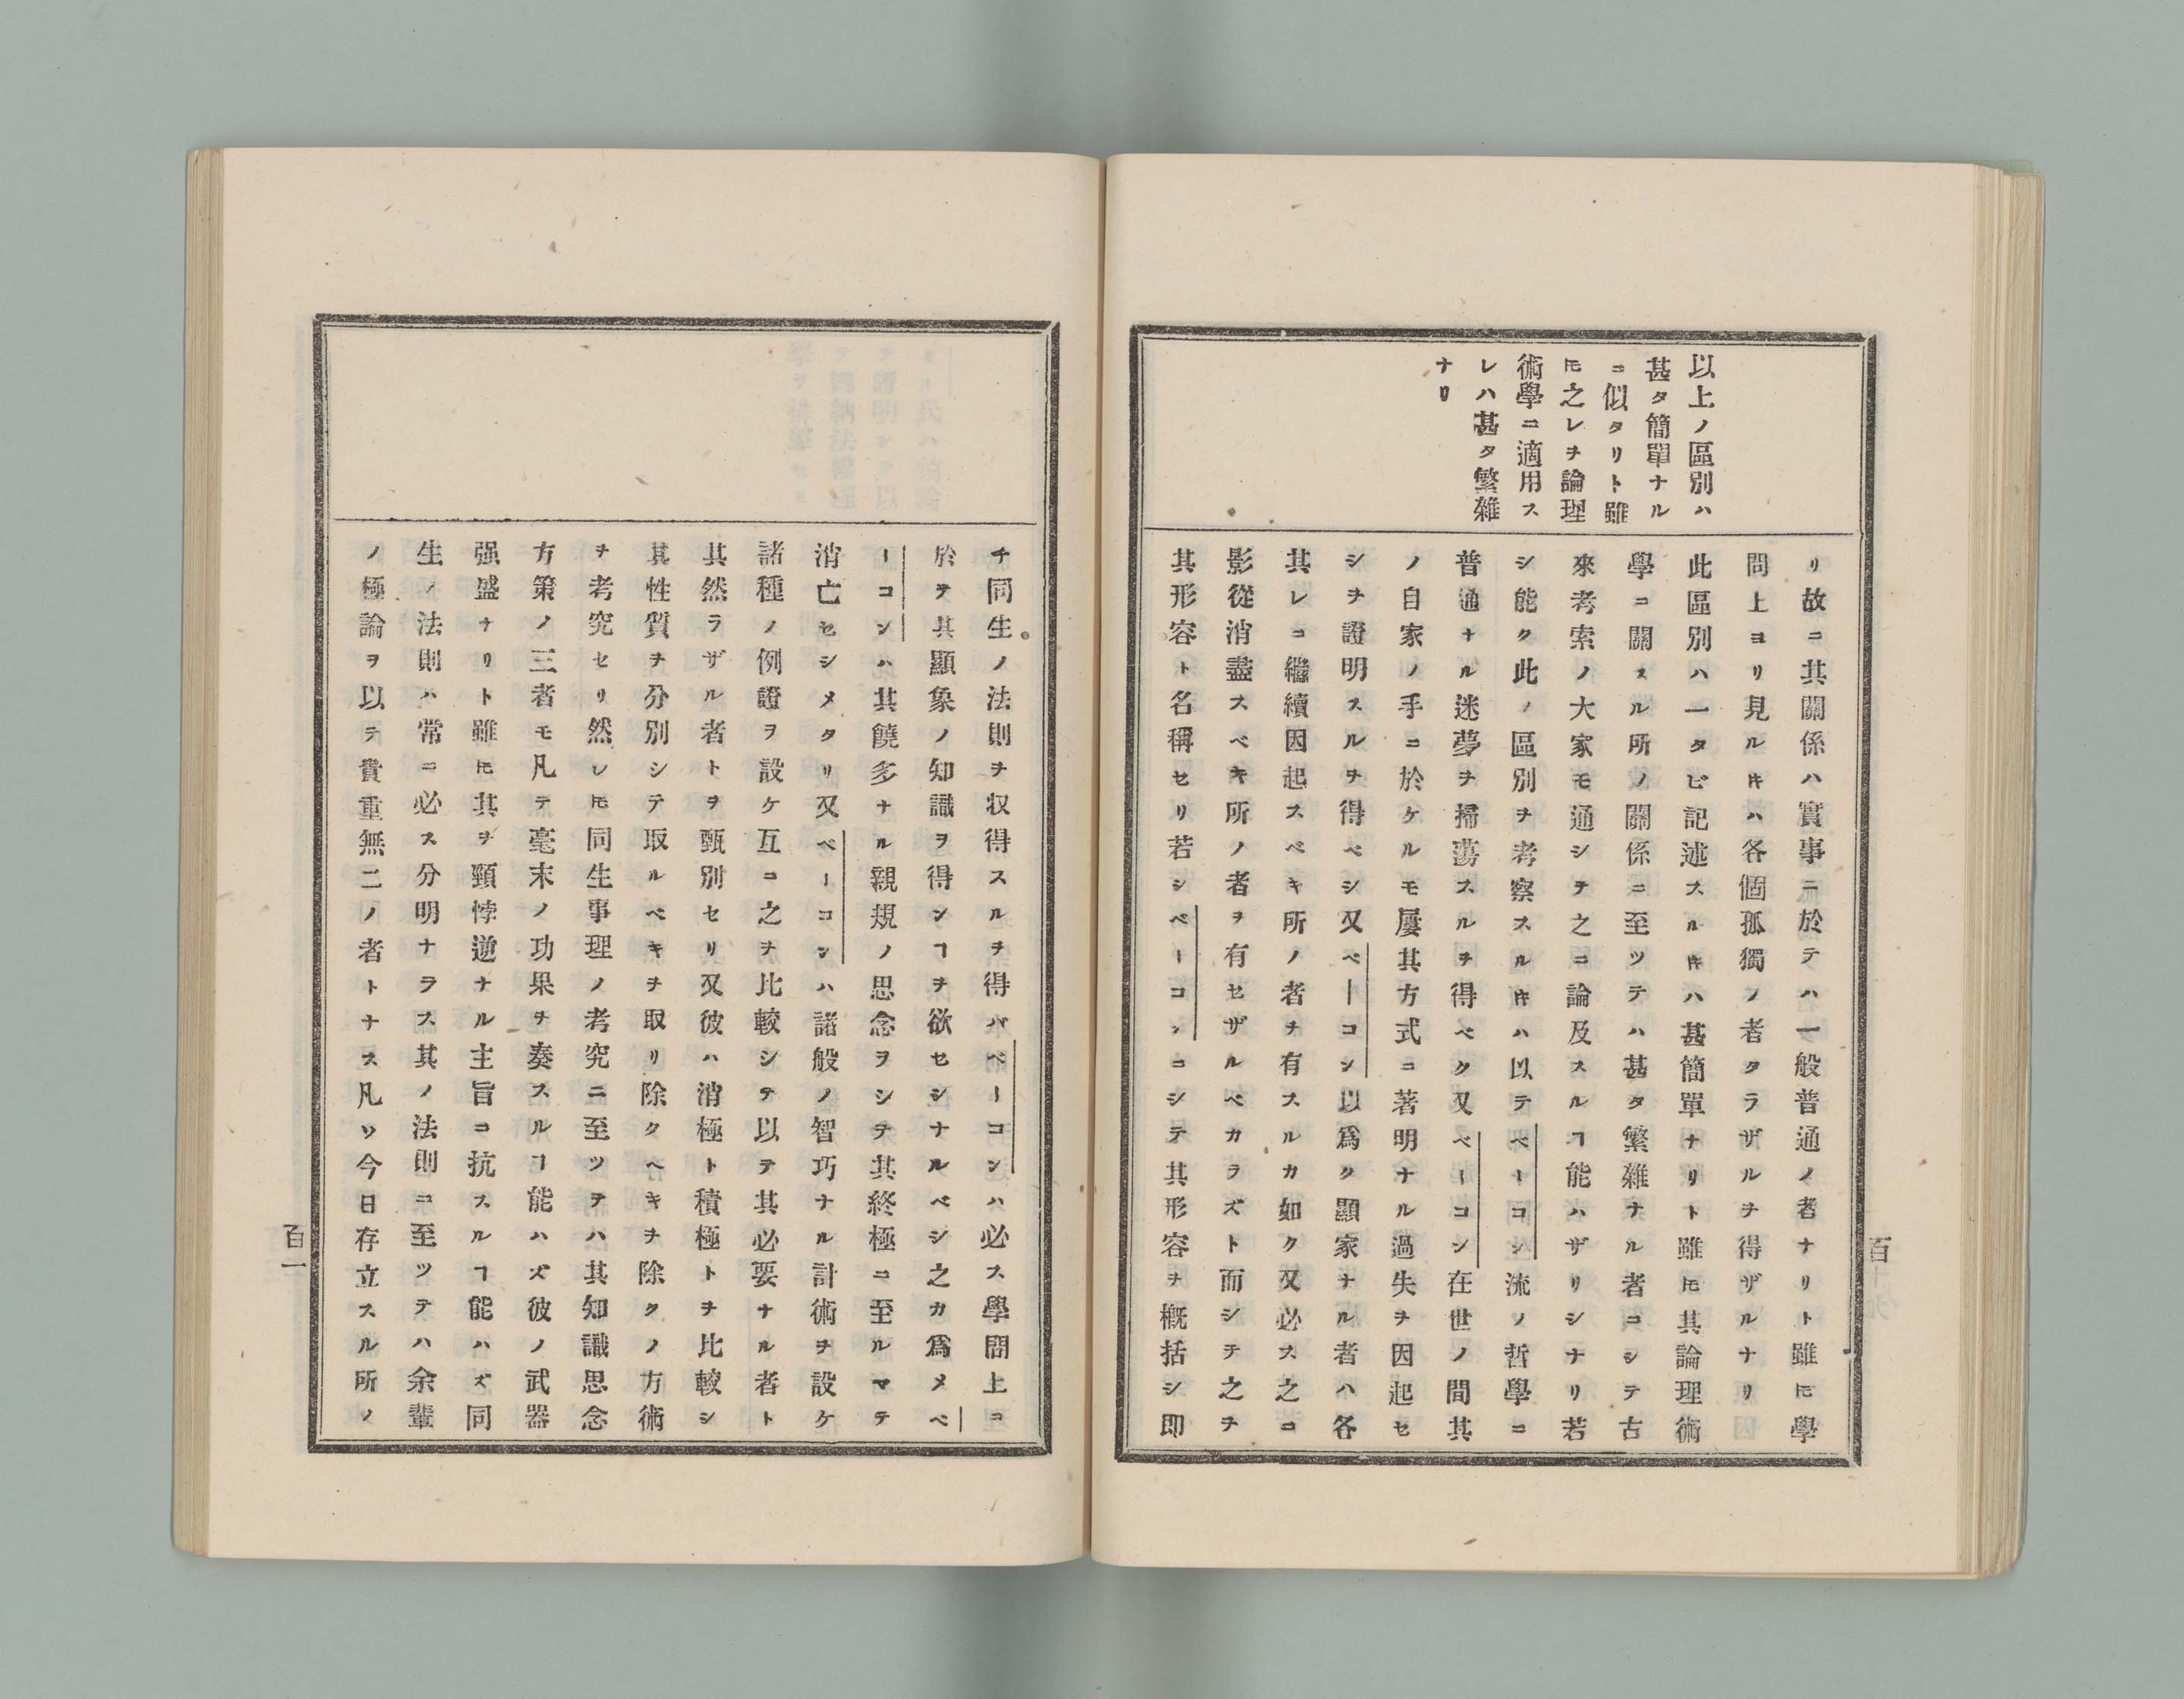 以上ノ區別ハ
甚タ簡單ナル
ニ似タリト雖
𪜈之レヲ論理
術學ニ適用ス
レハ甚タ繁雜
ナリ
リ故ニ其關係ハ實事ニ於テハ一般普通ノ者ナリト雖𪜈學
問上ヨリ見ルキハ各個孤獨ノ者タラザルヲ得ザルナリ
此區別ハ一タビ記述スルキハ甚簡單ナリト雖𪜈其論理術
學ニ關スル所ノ關係ニ至ツテハ甚タ繁雜ナル者ニシテ古
來考索ノ大家モ通シテ之ニ論及スルヿ能ハザリシナリ若
シ能ク此ノ區別ヲ考察スルキハ以テベーコン流ノ哲學ニ
普通ナル迷夢ヲ掃蕩スルヲ得ベク又ベーコン在世ノ間其
ノ自家ノ手ニ於ケルモ屢其方式ニ著明ナル過失ヲ因起セ
シヲ證明スルヲ得ベシ又ベーコン以爲ク顯家ナル者ハ各
其レニ繼續因起スベキ所ノ者ヲ有スルカ如ク又必ス之ニ
影從消盡スベキ所ノ者ヲ有セザルベカラズト而シテ之ヲ
其形容ト名稱セリ若シベーコンニシテ其形容ヲ概括シ即
百
チ同生ノ法則ヲ収得スルヲ得バベーコンハ必ス學問上ニ
於テ其顯象ノ知識ヲ得ンヿヲ欲セシナルベシ之カ爲メベ
ーコンハ其饒多ナル親規ノ思念ヲシテ其終極ニ至ルマテ
消亡セシメタリ又ベーコンハ諸般ノ智巧ナル計術ヲ設ケ
諸種ノ例證ヲ設ケ互ニ之ヲ比較シテ以テ其必要ナル者ト
其然ラザル者トヲ甄別セリ又彼ハ消極ト積極トヲ比較シ
其性質ヲ分別シテ取ルベキヲ取リ除クヘキヲ除クノ方術
ヲ考究セリ然レ𪜈同生事理ノ考究ニ至ツヲハ其知識思念
方策ノ三者モ凡テ毫末ノ功果ヲ奏スルヿ能ハズ彼ノ武器
强盛ナリト雖𪜈其ヲ頸悖逆ナル主旨ニ抗スルヿ能ハズ同
生ノ法則ハ常ニ必ス分明ナラス其ノ法則ニ至ツテハ余輩
ノ極論ヲ以テ貴重無二ノ者トナス凡ソ今日存立スル所ノ
百一